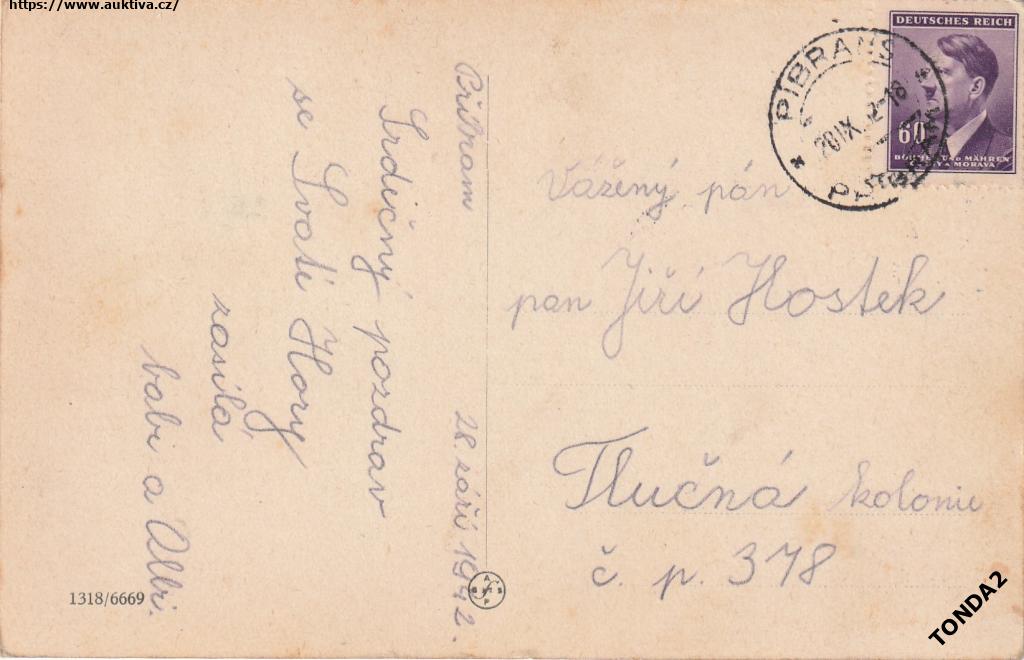 https://www.auktiva.cz/
Příbram 28. září 1942.
Srdečný pozdrav
se Svaté Hory
zasílá
babi a Albi.
1318/6669
DEUTSCHES REICH
60
BÖHMEN UND MÄHREN
ČECHY A MORAVA
PIBRANS
PŘÍBRAM
Vážený pán
pan Jiří Hostek
Tlučná kolonie
č. p. 378
TONDA2